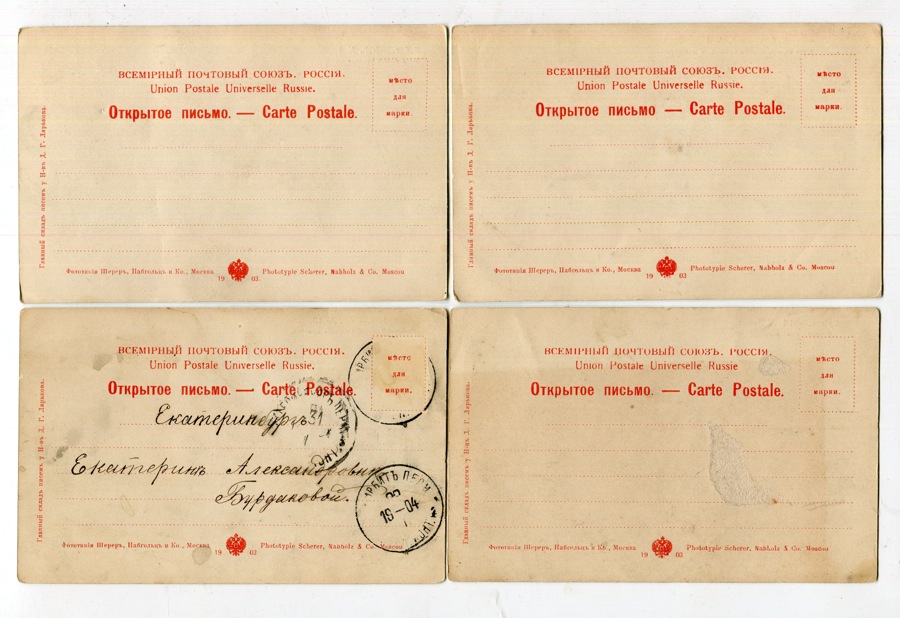 ВСЕМІРНЫЙ ПОЧТОВЫЙ СОЮЗЪ. РОССІЯ.
Union Postale Universelle Russie.
Открытое письмо. — Carte Postale.
мѣсто
для
марки.
Главный складъ писемъ у Н-въ Д. Г. Ларькова.
Фототипія Шереръ, Набгольцъ и Ко., Москва
19 03.
Phototypie Scherer, Nabholz & Co. Moscou
ВСЕМІРНЫЙ ПОЧТОВЫЙ СОЮЗЪ. РОССІЯ.
Union Postale Universelle Russie.
Открытое письмо. — Carte Postale.
мѣсто
для
марки.
Главный складъ писемъ у Н-въ Д. Г. Ларькова.
Фототипія Шереръ, Набгольцъ и Ко., Москва
19 03.
Phototypie Scherer, Nabholz & Co. Moscou
ВСЕМІРНЫЙ ПОЧТОВЫЙ СОЮЗЪ. РОССІЯ.
Union Postale Universelle Russie.
Открытое письмо. — Carte Postale.
мѣсто
для
марки.
Екатеринбургъ
Екатеринѣ Александровнѣ
Бурдаковой.
ИРБИТЪ ПЕРМ
19—04
Главный складъ писемъ у Н-въ Д. Г. Ларькова.
Фототипія Шереръ, Набгольцъ и Ко., Москва
19 03
Phototypie Scherer, Nabholz & Co. Moscou
ВСЕМІРНЫЙ ПОЧТОВЫЙ СОЮЗЪ. РОССІЯ.
Union Postale Universelle Russie
Открытое письмо. — Carte Postale.
мѣсто
для
марки.
Главный складъ писемъ у Н-въ Д. Г. Ларькова.
Фототипія Шереръ, Набгольцъ и Ко., Москва
19 03
Phototypie Scherer, Nabholz & Co. Moscou